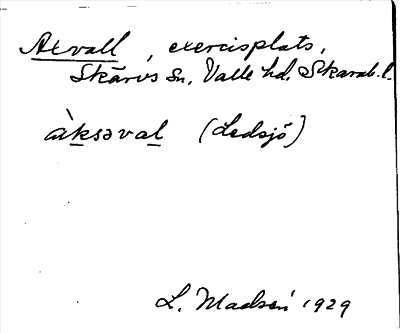 Axvall, exercisplats,
Skärvs sn, Valle hd, Skarab. l.
àksəval (Ledsjö)
L. Madsén 1929